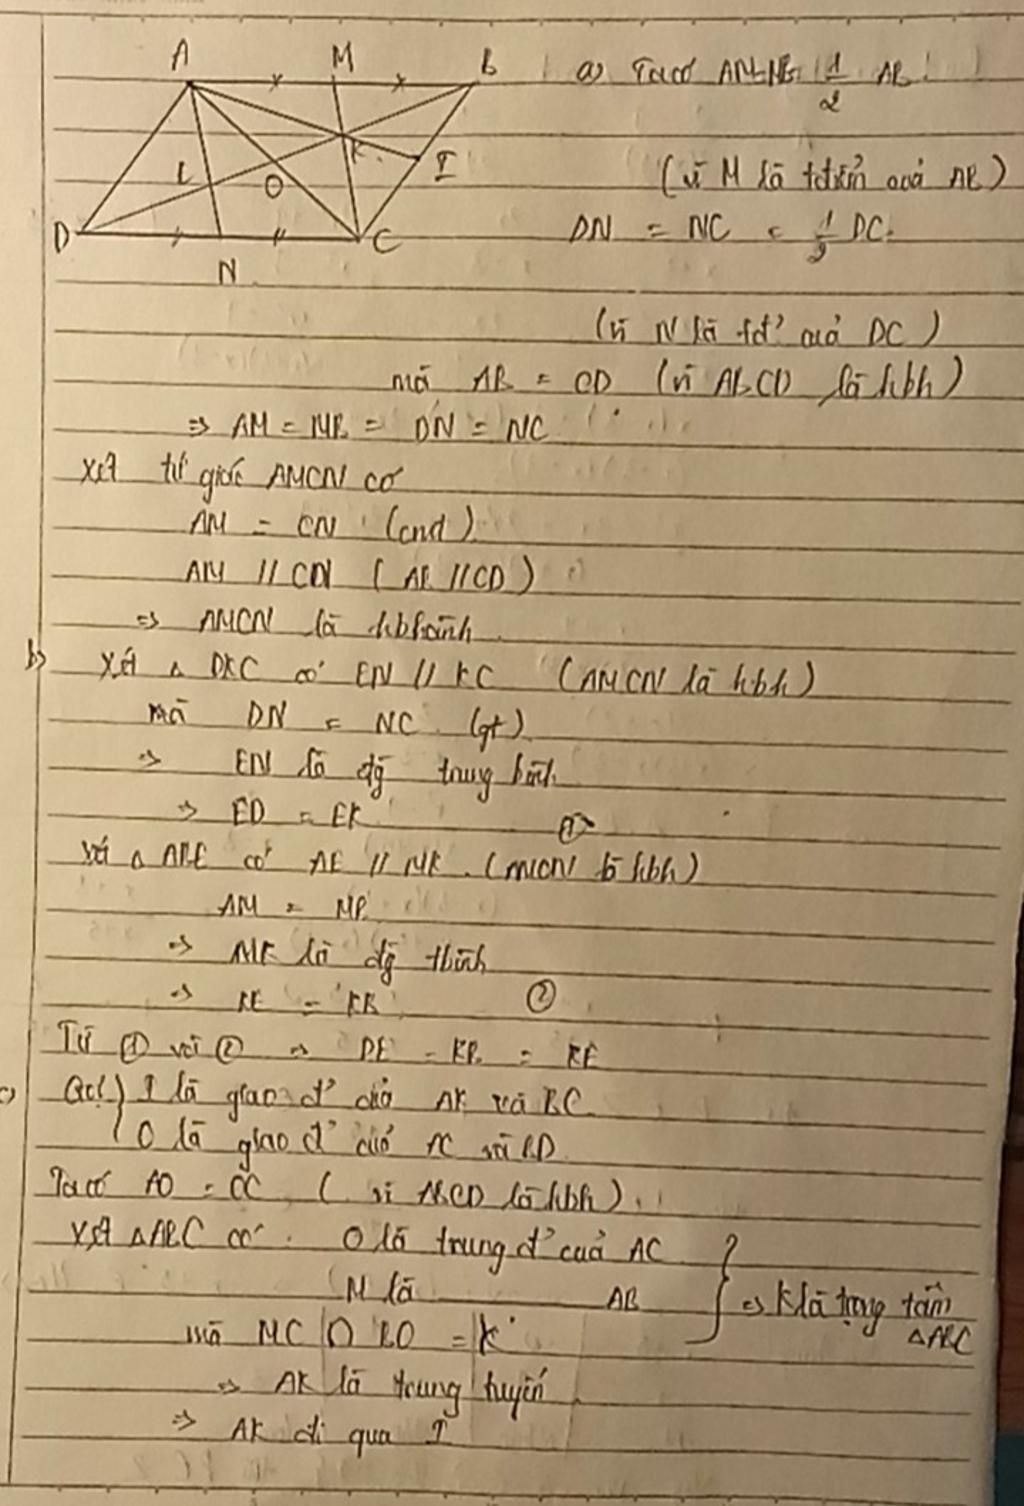 A M B
a) Ta có AM=MB= 1/2 AB
K I
(vì M là tđiểm của AB)
L O
D C
DN = NC = 1/2 DC
N
(vì N là tđ' của DC)
mà AB = CD (vì ABCD là hbh)
=> AM = MB = DN = NC
xét tứ giác AMCN có
AM = CN (cmt)
AM // CN (AB // CD)
=> AMCN là hbhành
b) xét Δ DKC có EN // KC (AMCN là hbh)
mà DN = NC (gt)
=> EN là đg trung bình
=> ED = EK ①
xét Δ ABE có AE // MK (AMCN là hbh)
AM = MB
=> MK là đg tbình
=> KE = KB ②
Từ ① và ② => DE = KB = KE
c) Gọi I là giao đ' của AK và BC
O là giao đ' của AC và BD
Ta có AO = OC (vì ABCD là hbh)
xét ΔABC có O là trung đ' của AC
M là AB => K là trọng tâm ΔABC
mà MC ∩ BO = K
=> AK là trung tuyến
=> AK đi qua I